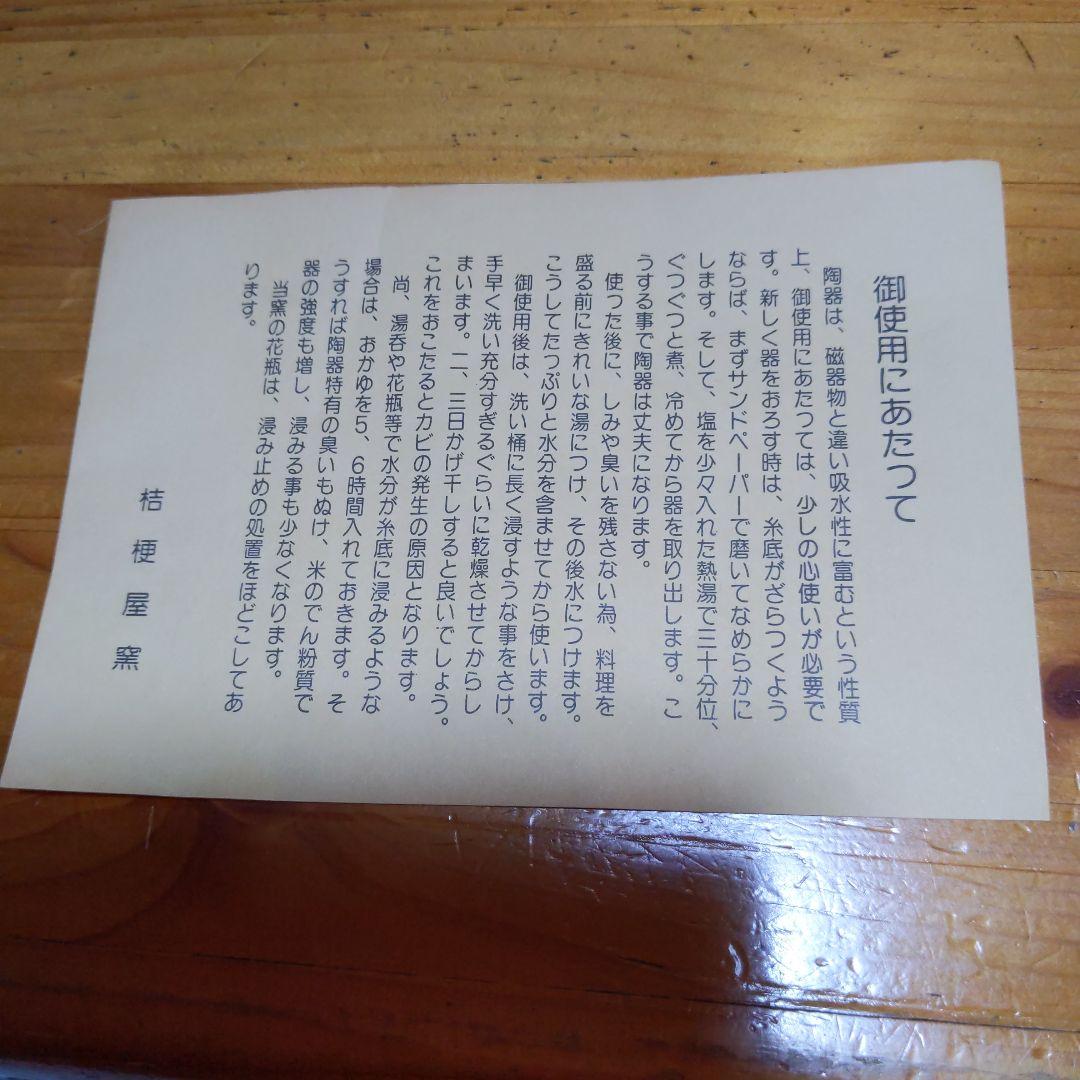 御使用にあたって
陶器は、磁器物と違い吸水性に富むという性質
上、御使用にあたっては、少しの心使いが必要で
す。新しく器をおろす時は、糸底がざらつくよう
ならば、まずサンドペーパーで磨いてなめらかに
します。そして、塩を少々入れた熱湯で三十分位、
ぐつぐつと煮、冷めてから器を取り出します。こ
うする事で陶器は丈夫になります。
使った後に、しみや臭いを残さない為、料理を
盛る前にきれいな湯につけ、その後水につけます。
こうしてたっぷりと水分を含ませてから使います。
御使用後は、洗い桶に長く浸すような事をさけ、
手早く洗い充分すぎるぐらいに乾燥させてからし
まいます。二、三日かげ干しすると良いでしょう。
これをおこたるとカビの発生の原因となります。
尚、湯呑や花瓶等で水分が糸底に浸みるような
場合は、おかゆを5、6時間入れておきます。そ
うすれば陶器特有の臭いもぬけ、米のでん粉質で
器の強度も増し、浸みる事も少なくなります。
当窯の花瓶は、浸み止めの処置をほどこしてあ
ります。
桔梗屋窯